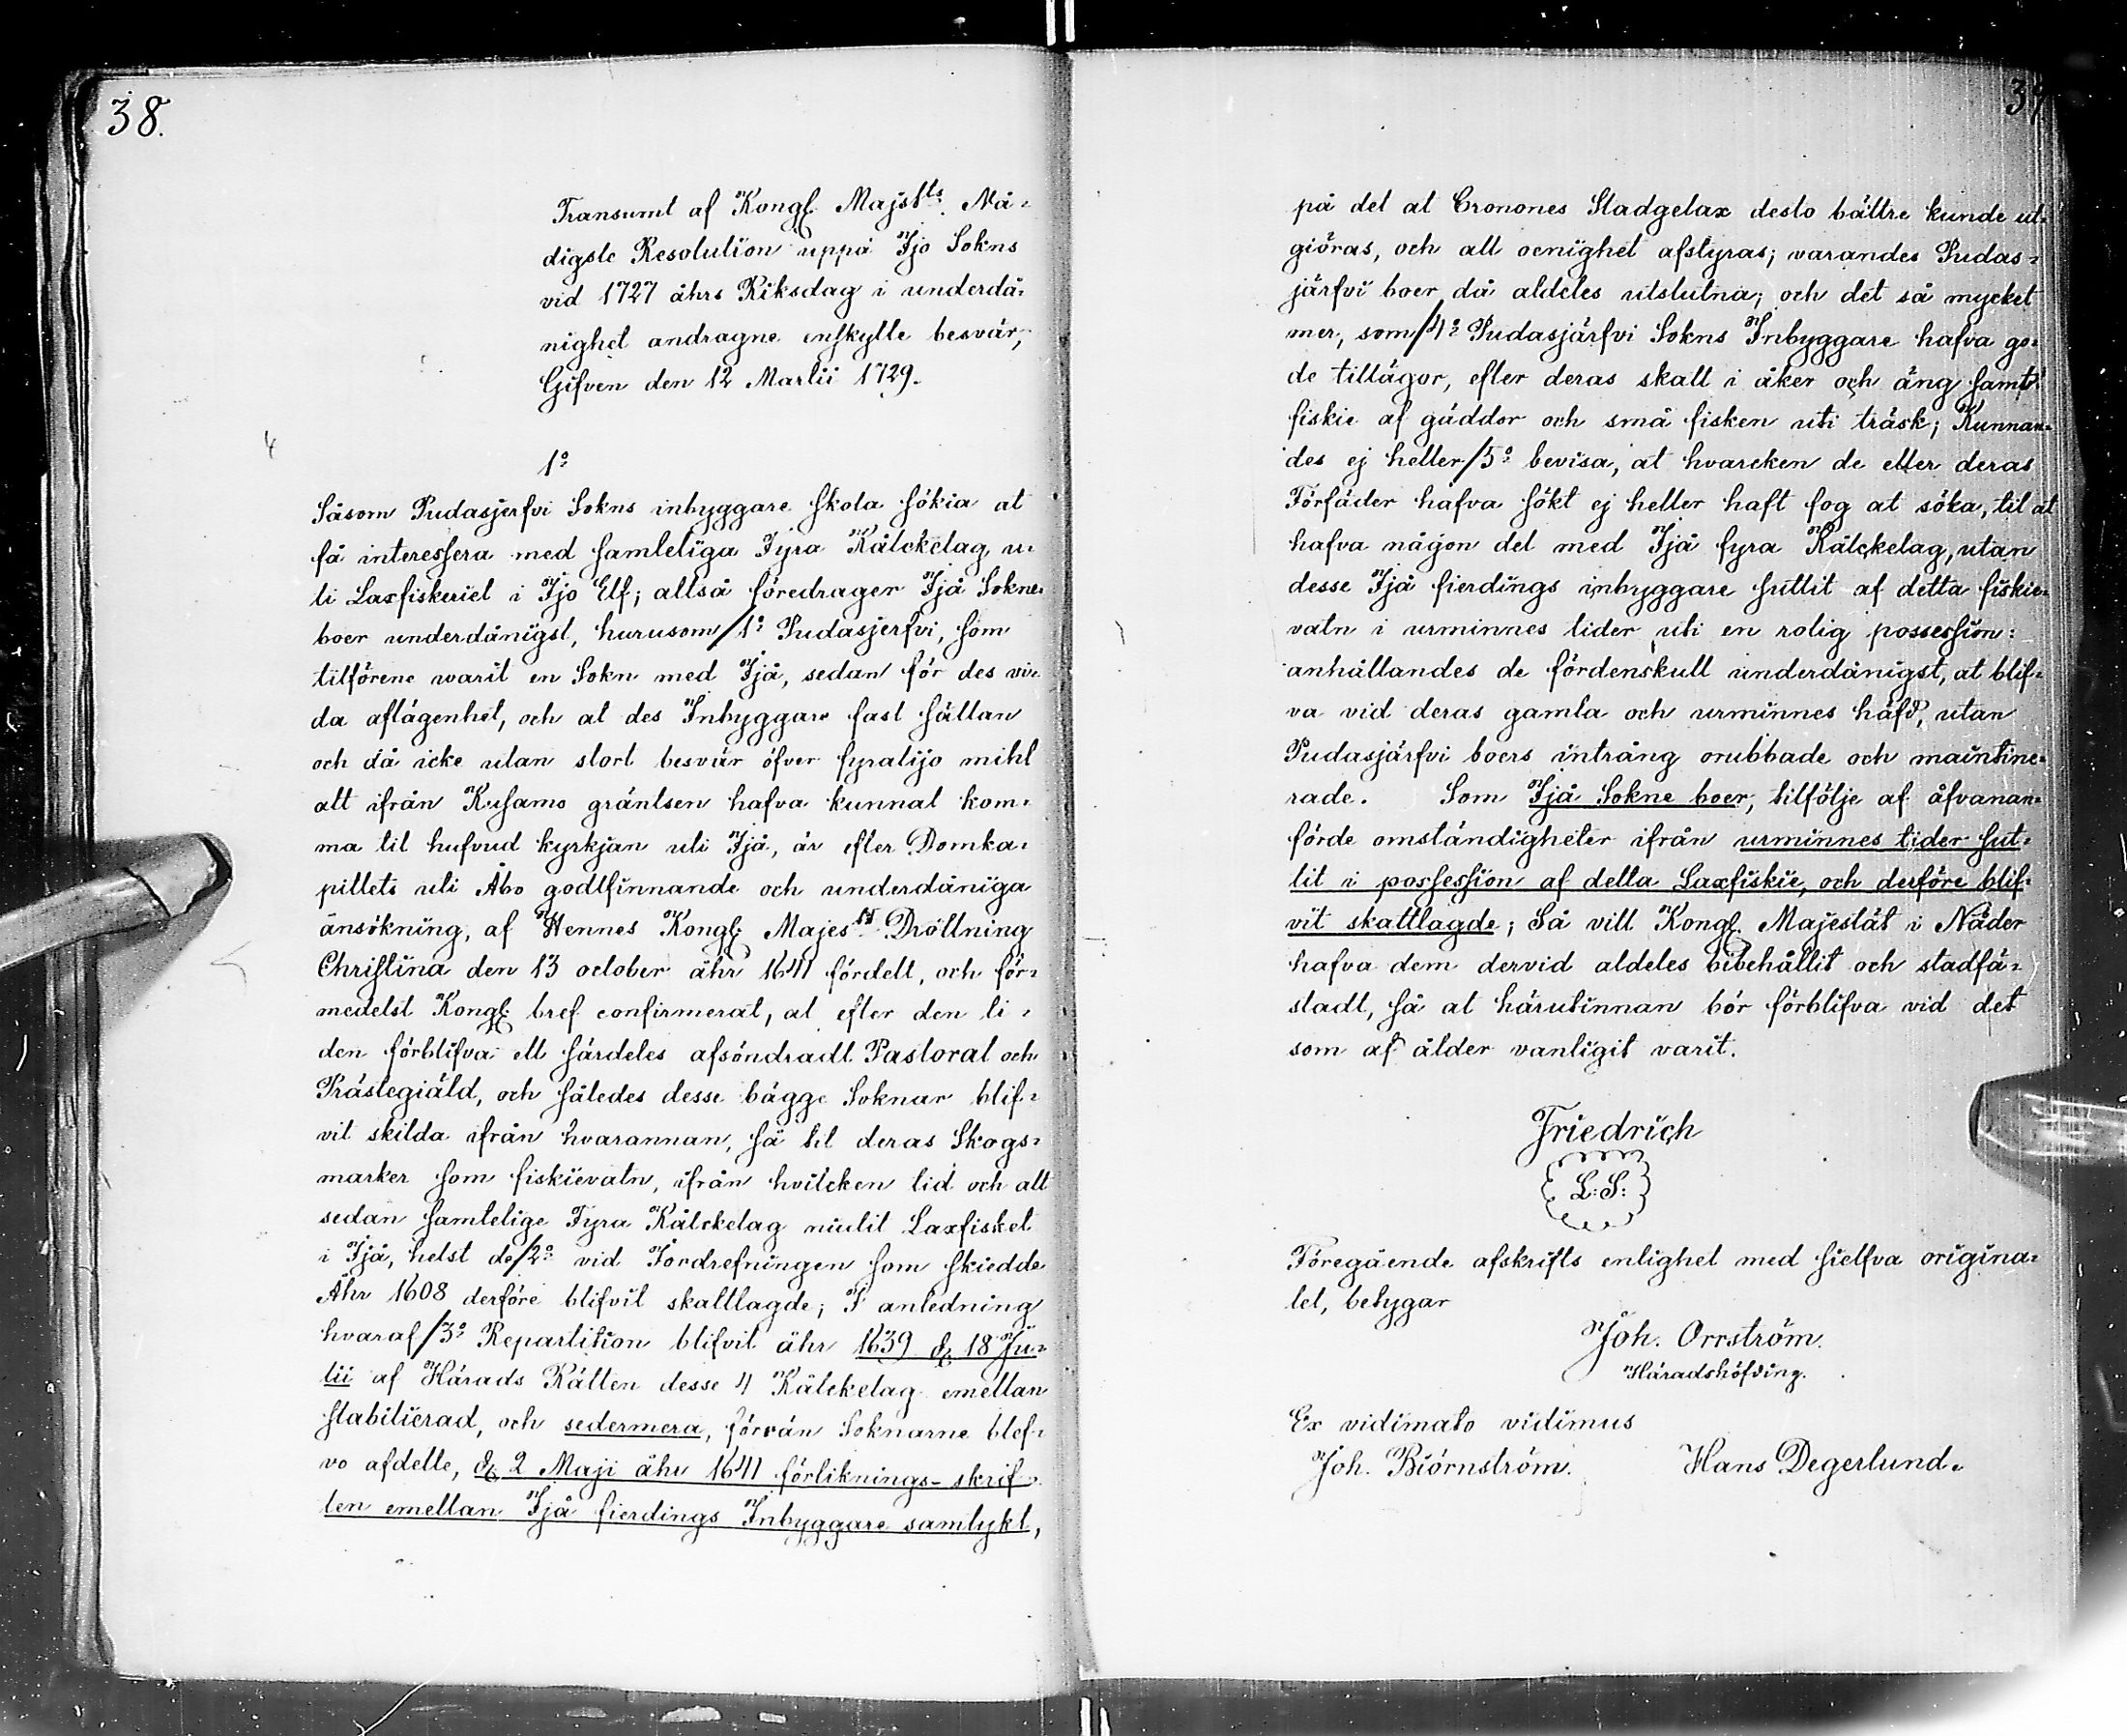 38.
Transumt af Kongl. Majst:ts Nå-
digste Resolution uppå Ijo Sokns
vid 1727 åhrs Riksdag i underdå-
nighet andragne enskylte besvär,
Gifven den 12 Martii 1729.
4
1:o
Såsom Pudasjerfvi Sokns inbyggare skola sökia at
få interessera med samteliga Fyra Kålckelag u-
ti Laxfiskeriet i Ijo Elf; altså föredrager Ijå Sokne-
boer underdånigst, hurusom /1:o Pudasjerfvi, som
tilförene warit en Sokn med Ijå, sedan för des vi-
da aflägenhet, och at des Inbyggare fast sällan
och då icke utan stort besvär öfver fyratijo mihl
alt ifrån Kusamo gräntsen hafva kunnat kom-
ma til hufvud kyrkjan uti Ijå, är efter Domka-
pittets uti Åbo godtfinnande och underdåniga
ansökning, af Hennes Kongl. Majes:tt Dröttning
Christina den 13 october åhr 1641 fördelt, och för-
medelst Kongl. bref confirmerat, at efter den ti-
den förblifva ett särdeles afsöndradt Pastorat och
Prästegiäld, och således desse bägge Soknar blif-
vit skilda ifrån hvarannan, så til deras Skogs-
marker som fiskievatn, ifrån hvilcken tid och alt
sedan samtelige Fyra Kålckelag niutit Laxfisket
i Ijå, helst de /2:o vid Jordrefningen som skiedde
Åhr 1608 derföre blifvit skattlagde; I anledning
hvaraf /3:o Repartition blifvit åhr 1639 d. 18 Ju-
lii af Härads Rätten desse 4 Kålckelag emellan
stabilierad, och sedermera, förrän Soknarne blef-
vo afdelte, d. 2 Maji åhr 1641 förliknings-skrif-
ten emellan Ijå fierdings Inbyggare samtykt,
39
på det at Cronones Stadgelax desto bättre kunde ut-
giöras, och all oenighet afstyras; varandes Pudas-
järfvi boer då aldeles utslutna; och det så mycket
mer, som /4:o Pudasjärfvi Sokns Inbyggare hafva go-
de tillägor, efter deras skatt i åker och äng samt
fiskie af gäddor och små fisken uti träsk; Kunnan-
des ej heller /5:o bevisa, at hvarcken de eller deras
Förfäder hafva sökt ej heller haft fog at söka, til at
hafva någon del med Ijå fyra Kålckelag, utan
desse Ijå fierdings inbyggare suttit af detta fiskie-
vatn i urminnes tider uti en rolig possession:
anhållandes de fördenskull underdånigst, at blif-
va vid deras gamla och urminnes häfd, utan
Pudasjärfvi boers intrång orubbade och maintine-
rade. Som Ijå Sokne boer, tilfölje af åfvanan-
förde omständigheter ifrån urminnes tider sut-
tit i possession af detta Laxfiskie, och derföre blif-
vit skattlagde; Så vill Kongl. Majestät i Nåder
hafva dem dervid aldeles bibehållit och stadfä-
stadt, så at härutinnan bör förblifva vid det
som af ålder vanligit varit.
Friedrich
L:S:
Föregående afskrifts enlighet med sielfva origina-
let, betygar
Joh. Orrström.
Häradshöfding.
Ex vidimato vidimus
Joh. Biörnström. Hans Degerlund.